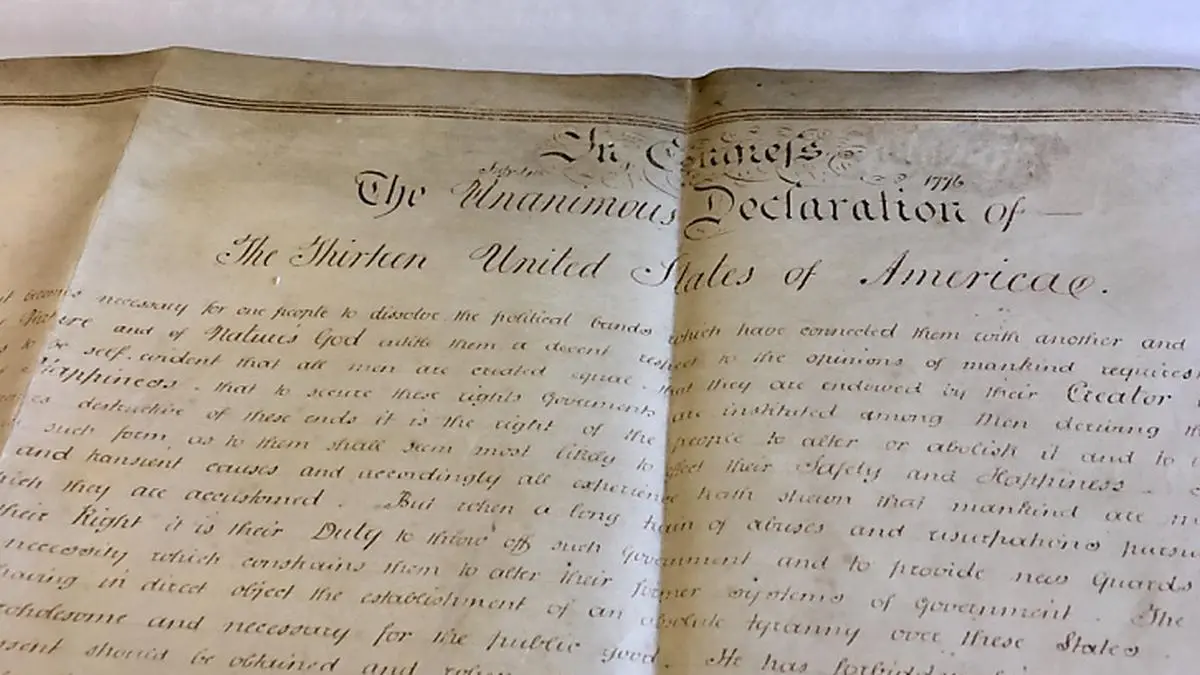 In Congress
July 4th 1776
The Unanimous Declaration of —
The Thirteen United States of America.
becomes necessary for one people to dissolve the political bands which have connected them with another and
and of Nature's God entitle them a decent respect to the opinions of mankind requires
be self-evident that all men are created equal. that they are endowed by their Creator
Happiness. that to secure these rights Governments are instituted among Men deriving
destructive of these ends it is the right of the people to alter or abolish it and to
such form, as to them shall seem most likely to effect their Safety and Happiness.
and transient causes and accordingly all experience hath shewn that mankind are
which they are accustomed. But when a long train of abuses and usurpations
their Right it is their Duty to throw off such Government and to provide new Guards
necessity which constrains them to alter their former systems of Government. The
having in direct object the establishment of an absolute tyranny over these States
wholesome and necessary for the public good. He has
should be obtained and